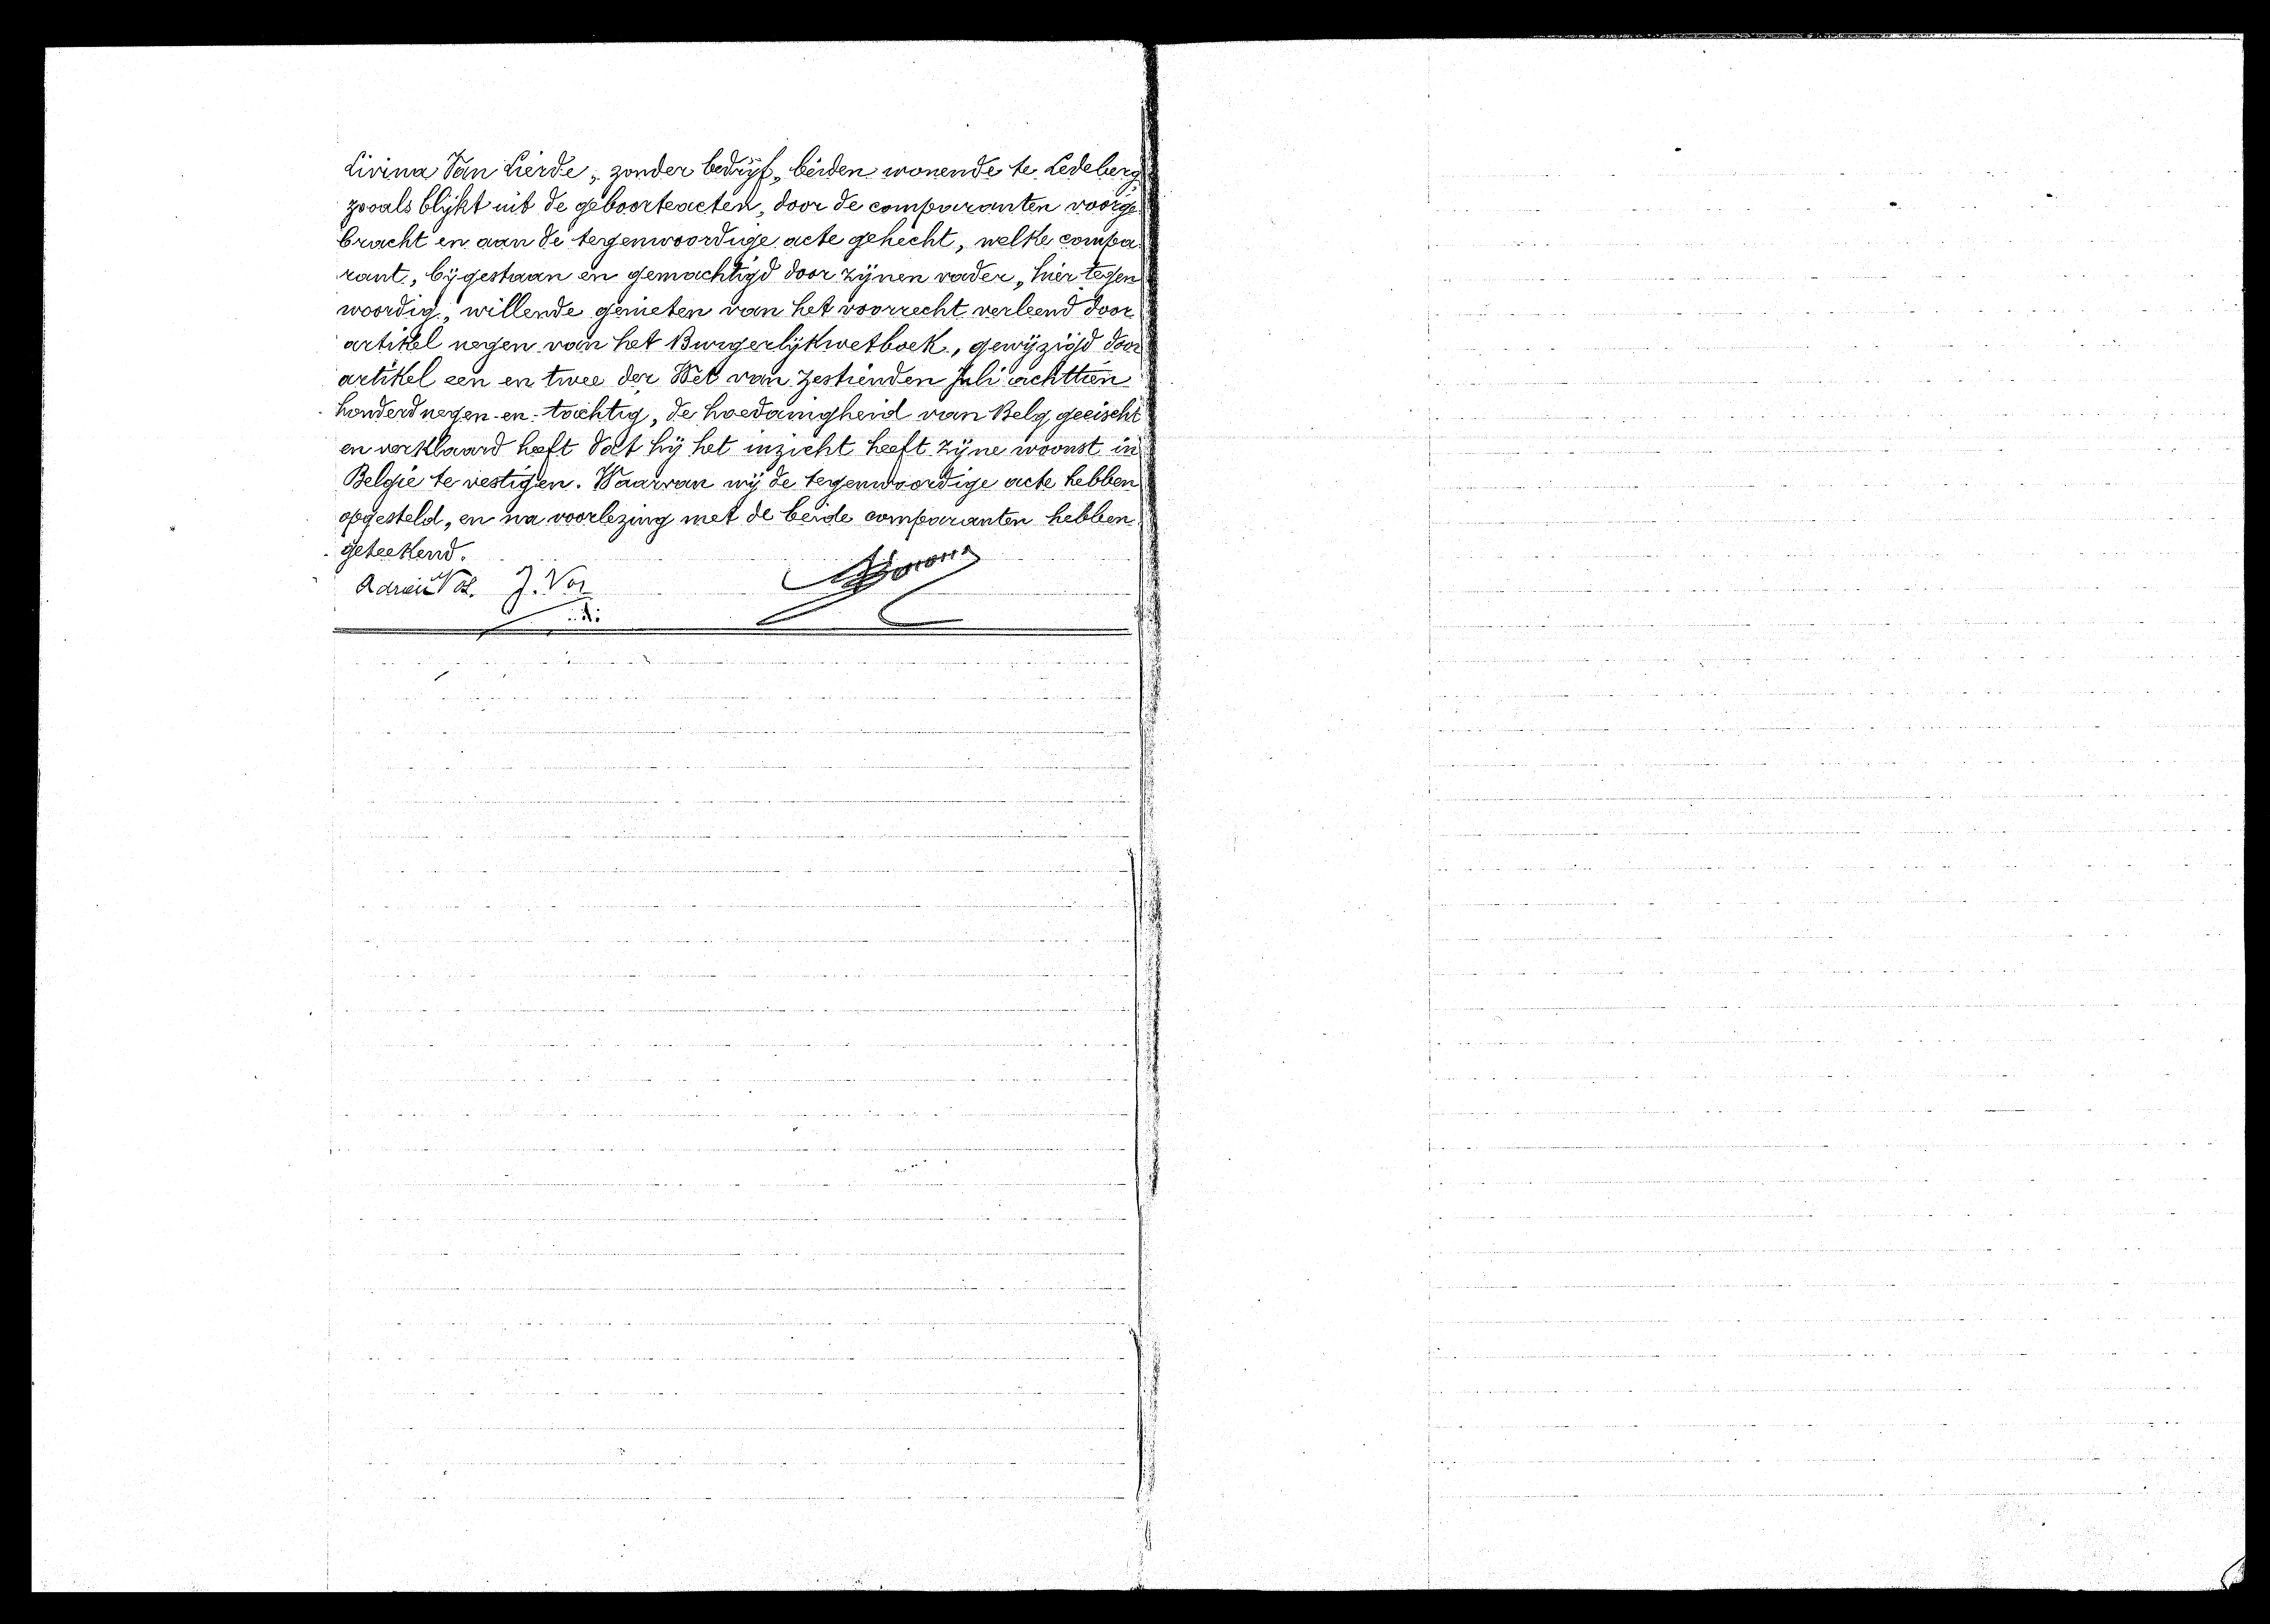 Livina Van Lierde, zonder bedrijf, beiden wonende te Ledeberg
zooals blijkt uit de geboorteacten, door de comparanten voorge-
bracht en aan de tegenwoordige acte gehecht, welke compa-
rant, bijgestaan en gemachtigd door zijnen vader, hier tegen
woordig, willende genieten van het voorrecht verleend door
artikel negen van het Burgerlijkwetboek, gewijzigd door
artikel een en twee der Wet van Zestienden Juli achttien
honderd negen-en-tachtig, de hoedanigheid van Belg geeischt
en verklaard heeft dat hij het inzicht heeft zijne woonst in
België te vestigen. Waarvan wij de tegenwoordige acte hebben
opgesteld, en na voorlezing met de beide comparanten hebben
geteekend.
Vos. J. Vos